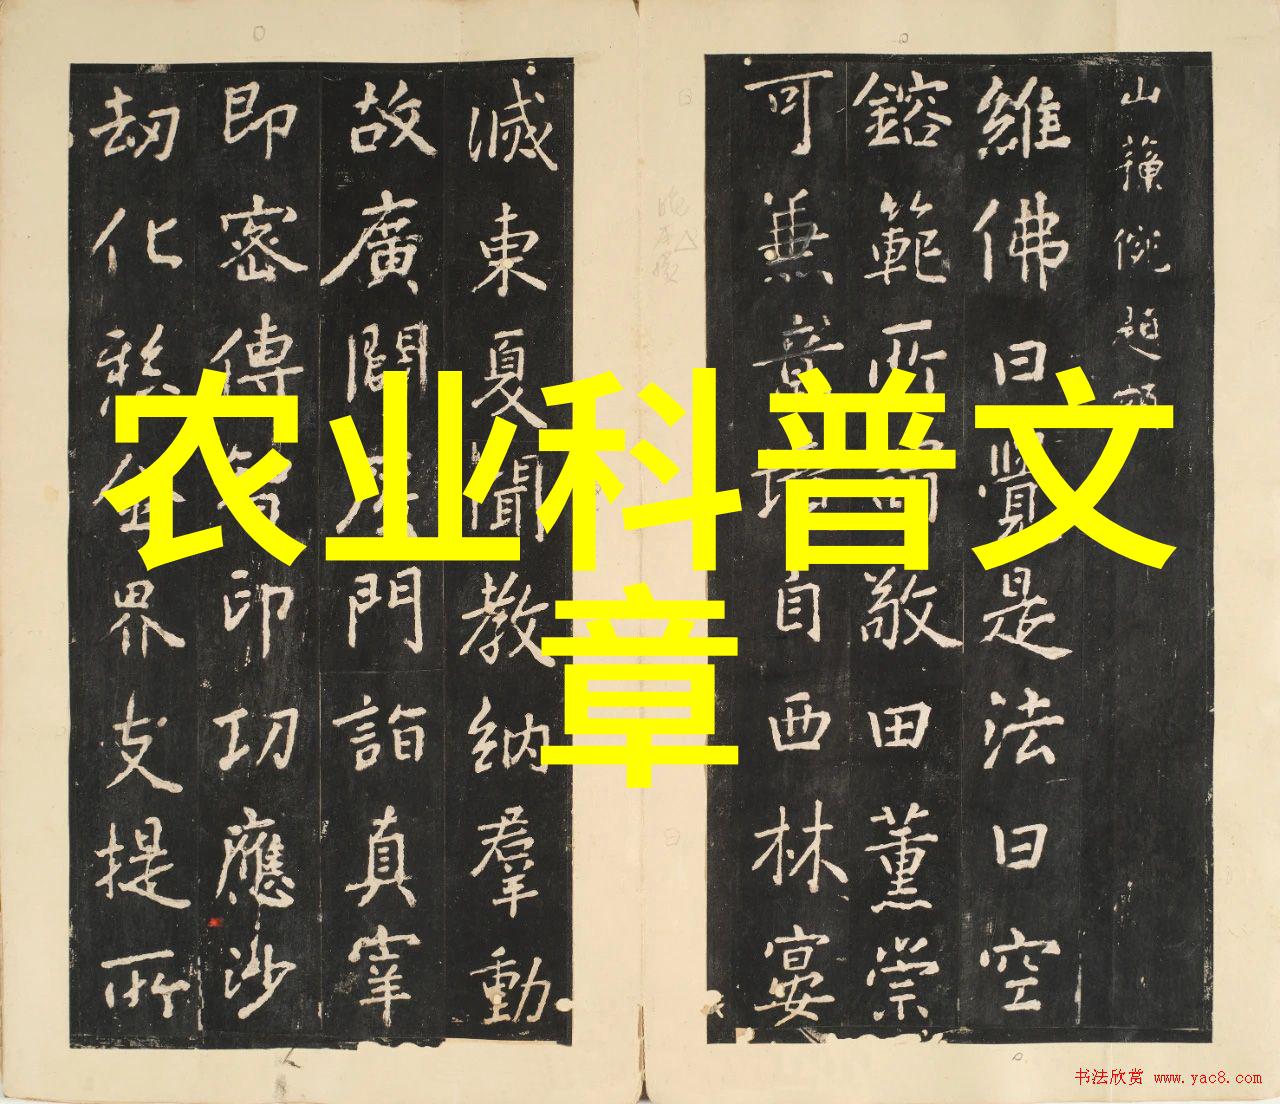 農业科普文
章
維佛曰覺是法曰空
鎔範所敬田薰崇
可兼自西林宴
滅東夏聞教納羣動
故廣開門詣真宰
即密傳印功應沙
劫化界支提所
书法欣赏 www.yac8.com